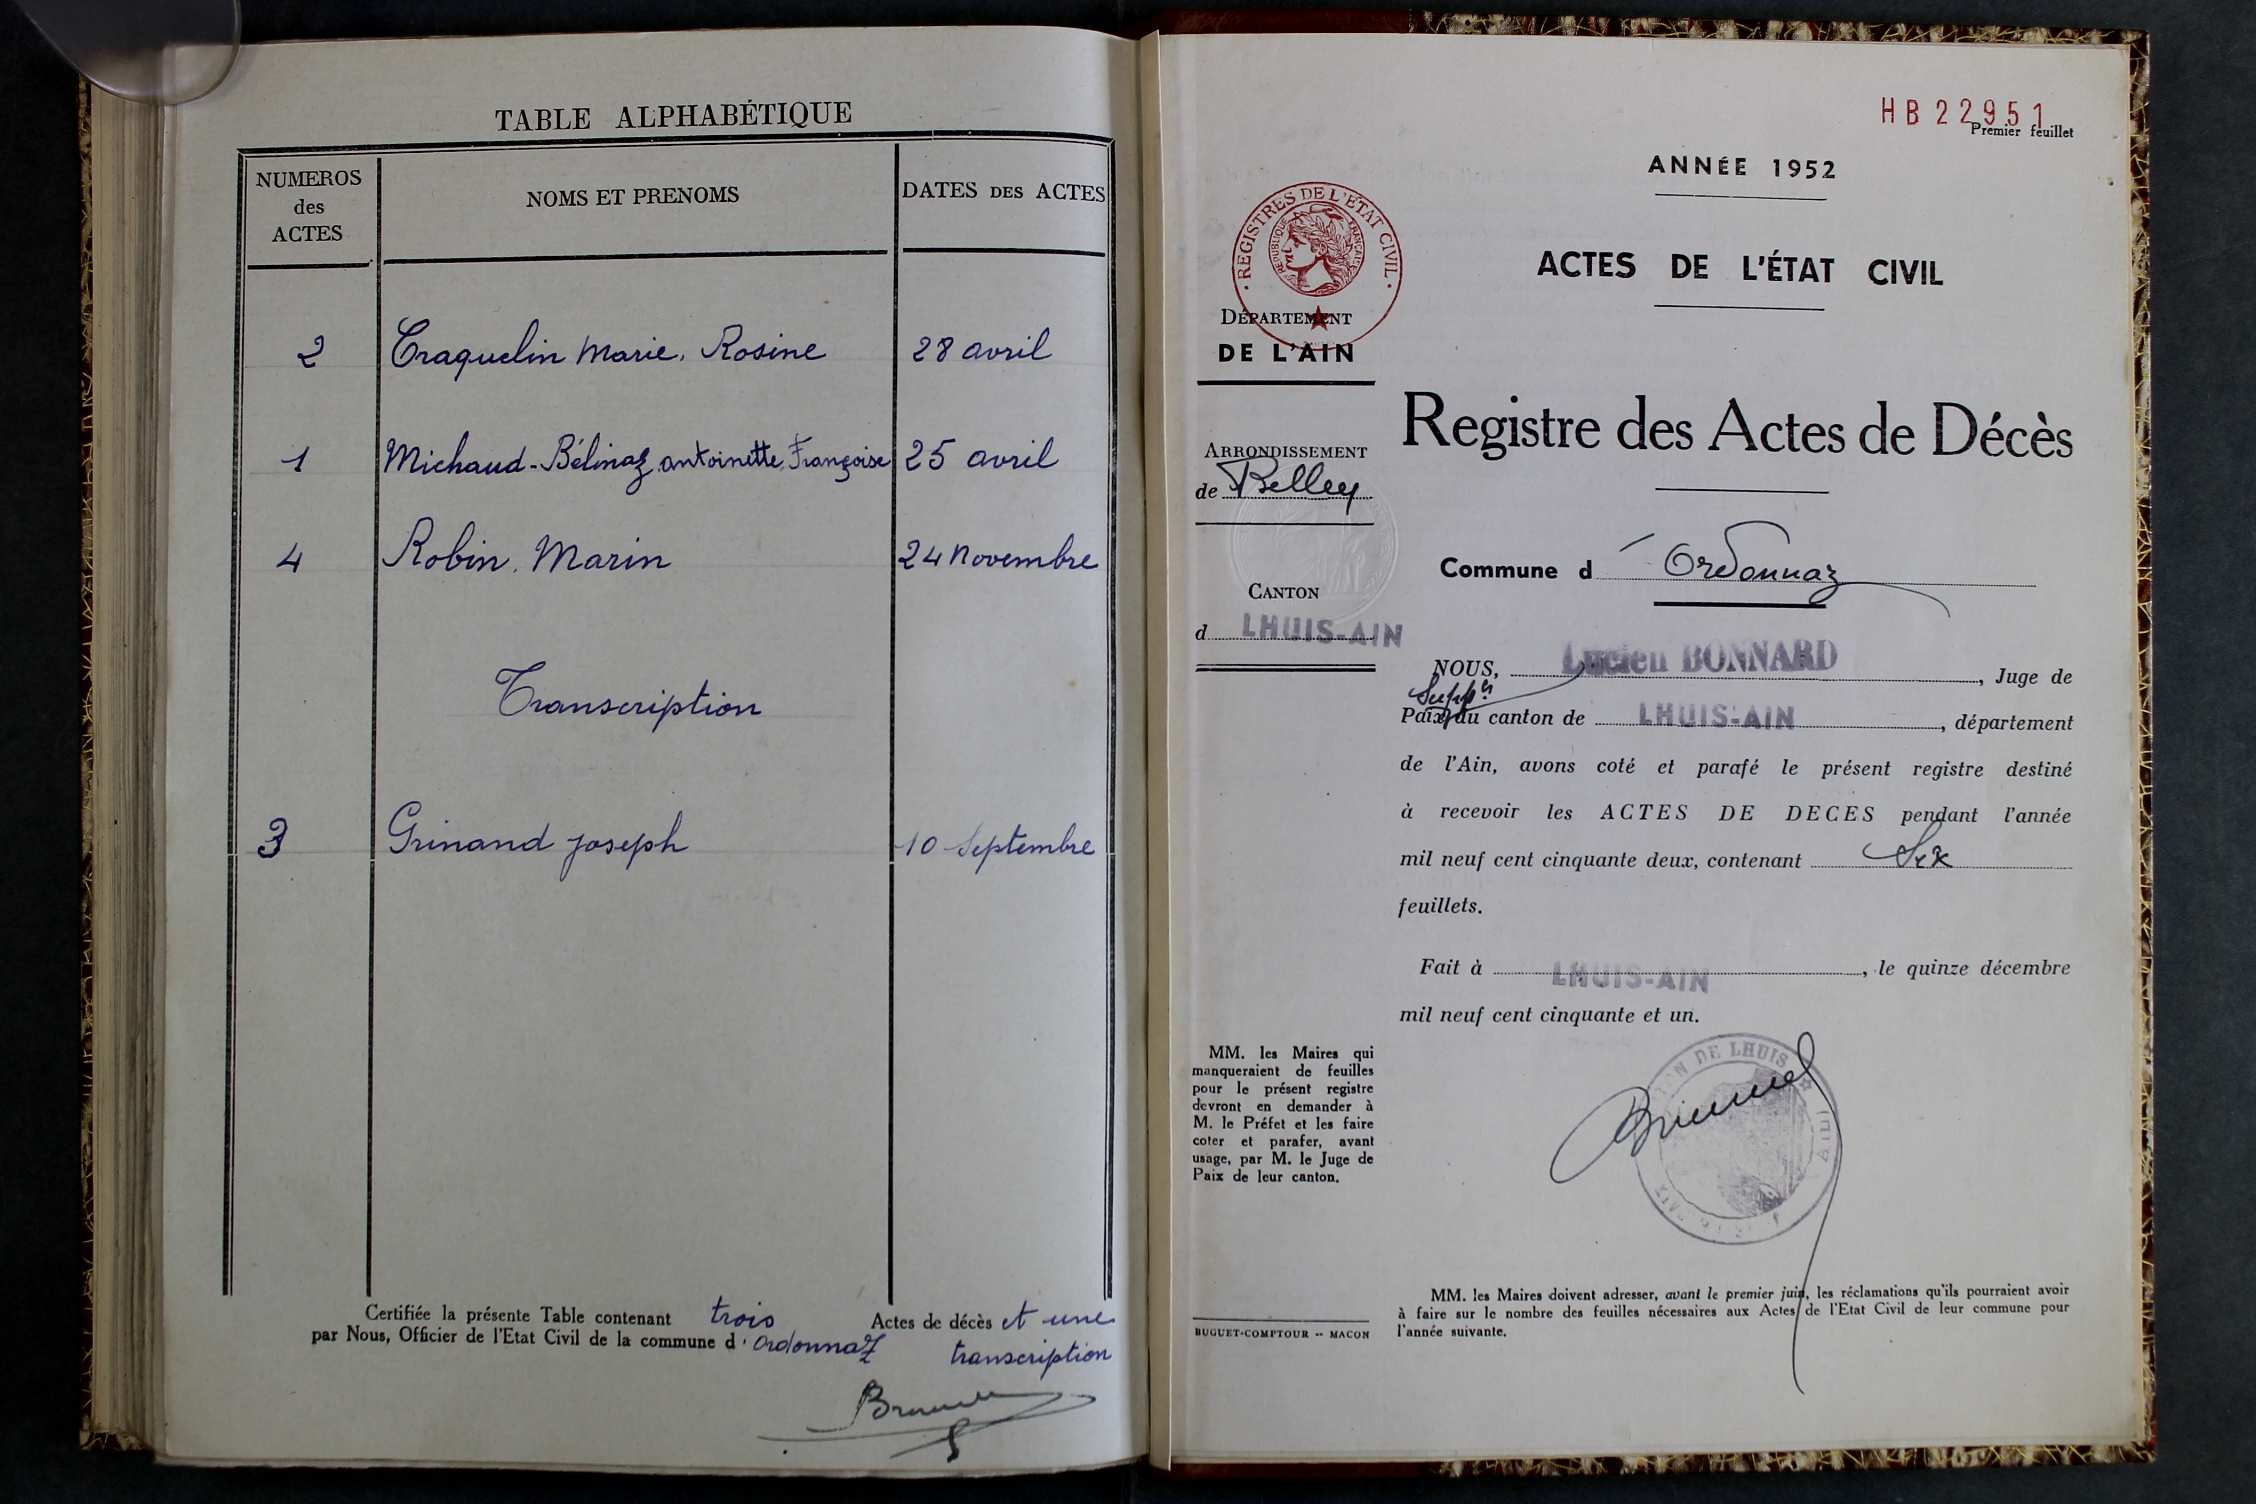 TABLE ALPHABÉTIQUE
NUMEROS
des
ACTES
NOMS ET PRENOMS
DATES DES ACTES
2 Craquelin Marie, Rosine 28 avril
1 Michaud-Bélinaz, antoinette, Françoise 25 avril
4 Robin, Marin 24 Novembre
Transcription
3 Grinand joseph 10 Septembre
Certifiée la présente Table contenant trois Actes de décès et une
par Nous, Officier de l'Etat Civil de la commune d' OrdonnaZ transcription
HB 22951
Premier feuillet
ANNÉE 1952
REGISTRES DE L'ETAT CIVIL
REPUBLIQUE FRANÇAISE
ACTES DE L'ÉTAT CIVIL
DÉPARTEMENT
DE L'AIN
Registre des Actes de Décès
ARRONDISSEMENT
de Belley
Commune d' Ordonnaz
CANTON
d LHUIS-AIN
NOUS, Lucien BONNARD, Juge de
Supp
Paix du canton de LHUIS-AIN, département
de l'Ain, avons coté et parafé le présent registre destiné
à recevoir les ACTES DE DECES pendant l'année
mil neuf cent cinquante deux, contenant Six
feuillets.
Fait à LHUIS-AIN, le quinze décembre
mil neuf cent cinquante et un.
DE LHUIS
MM. les Maires qui
manqueraient de feuilles
pour le présent registre
devront en demander à
M. le Préfet et les faire
coter et parafer, avant
usage, par M. le Juge de
Paix de leur canton.
BUGUET-COMPTOUR -- MACON
MM. les Maires doivent adresser, avant le premier juin, les réclamations qu'ils pourraient avoir
à faire sur le nombre des feuilles nécessaires aux Actes de l'Etat Civil de leur commune pour
l'année suivante.